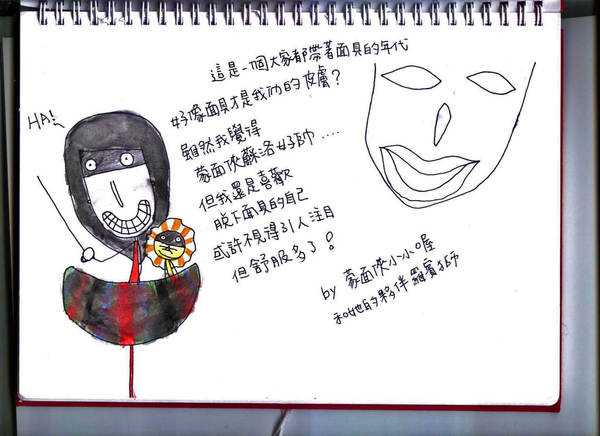 HA!
這是一個大家都帶著面具的年代
好像面具才是我們的皮膚?
雖然我覺得
蒙面俠蘇洛好帥....
但我還是喜歡
脫下面具的自己
或許不見得引人注目
但舒服多了?
by 蒙面俠小小喔
和她的夥伴羅賓獅